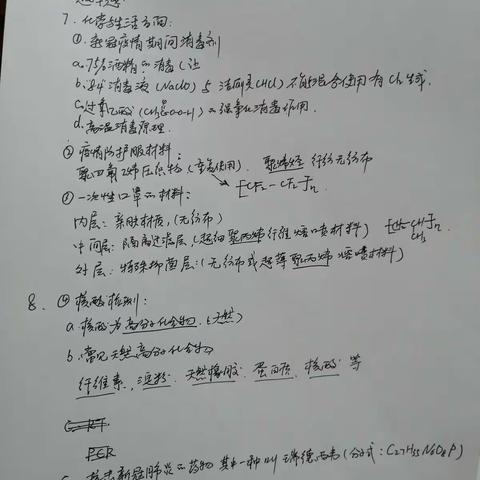 7. 化学与生活方面:
①. 新冠疫情期间消毒剂
a. 75%酒精的消毒
b. 84消毒液 (NaClO) 与洁厕灵(HCl) 不能混合使用有Cl₂生成.
c. 过氧乙酸 (CH₃COOOH) 的强氧化消毒作用.
d. 高温消毒原理.
② 疫情防护服材料:
聚四氟乙烯压织物 使用). 聚烯烃纺纱无纺布
[CF₂-CF₂]n
一次性口罩的材料:
内层: 亲肤材质, (无纺布)
中间层: 隔离过滤层, (超细聚丙烯纤维熔喷材料) [CH₂-CH]n
CH₃
外层: 特殊抑菌层: (无纺布或超薄聚丙烯熔喷材料)
8. ④ 核酸检测:
a. 核酸为高分子化合物. (天然)
b. 常见天然高分子化合物
纤维素, 淀粉, 天然橡胶, 蛋白质, 核酸等
PCR
新冠肺炎的药物其中一种叫瑞德西韦 (分子式: C₂₇H₃₅N₆O₈P)